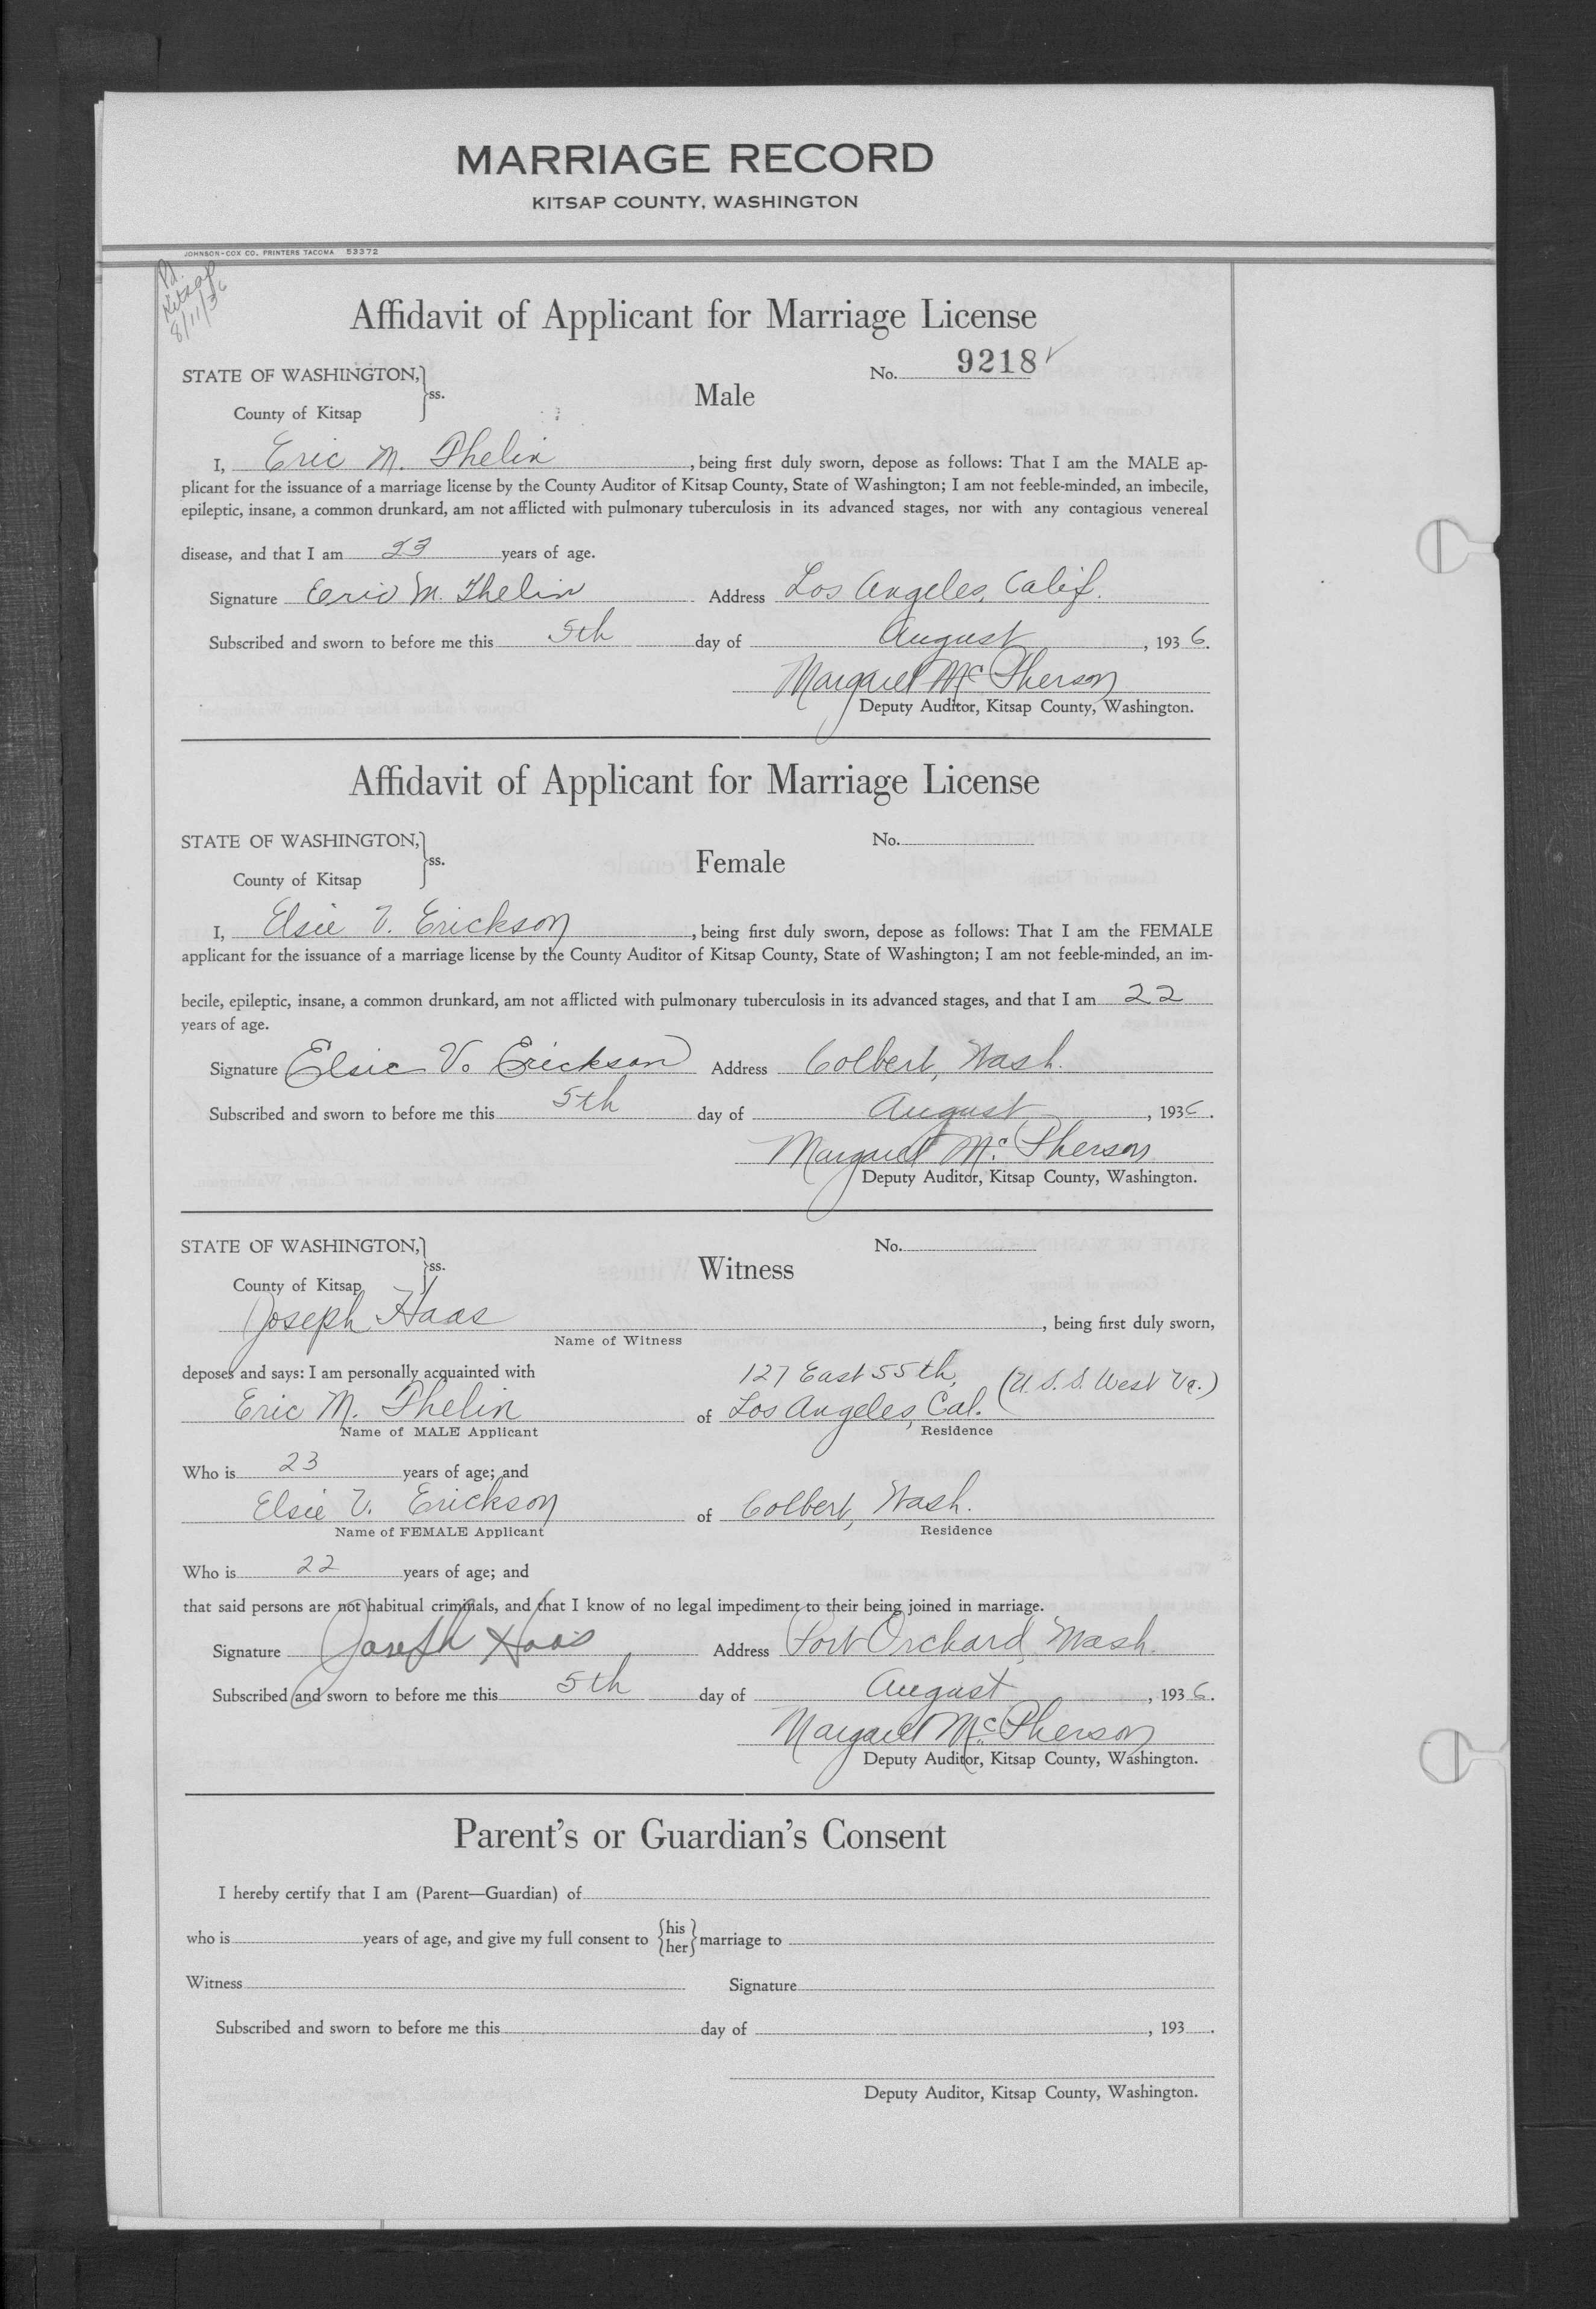 MARRIAGE RECORD
KITSAP COUNTY, WASHINGTON
JOHNSON-COX CO. PRINTERS TACOMA 53372
Pd.
Kitsap
8/11/36
Affidavit of Applicant for Marriage License
STATE OF WASHINGTON, } ss.
County of Kitsap
No. 9218 ✓
Male
I, Eric M. Thelin, being first duly sworn, depose as follows: That I am the MALE ap-
plicant for the issuance of a marriage license by the County Auditor of Kitsap County, State of Washington; I am not feeble-minded, an imbecile,
epileptic, insane, a common drunkard, am not afflicted with pulmonary tuberculosis in its advanced stages, nor with any contagious venereal
disease, and that I am 23 years of age.
Signature Eric M. Thelin Address Los Angeles, Calif.
Subscribed and sworn to before me this 5th day of August, 1936.
Margaret McPherson
Deputy Auditor, Kitsap County, Washington.
Affidavit of Applicant for Marriage License
STATE OF WASHINGTON, } ss.
County of Kitsap
No.
Female
I, Elsie V. Erickson, being first duly sworn, depose as follows: That I am the FEMALE
applicant for the issuance of a marriage license by the County Auditor of Kitsap County, State of Washington; I am not feeble-minded, an im-
becile, epileptic, insane, a common drunkard, am not afflicted with pulmonary tuberculosis in its advanced stages, and that I am 22
years of age.
Signature Elsie V. Erickson Address Colbert, Wash.
Subscribed and sworn to before me this 5th day of August, 1936.
Margaret McPherson
Deputy Auditor, Kitsap County, Washington.
STATE OF WASHINGTON, } ss.
County of Kitsap
No.
Witness
Joseph Haas, being first duly sworn,
Name of Witness
deposes and says: I am personally acquainted with
127 East 55th, (U.S.S. West Va.)
Eric M. Thelin of Los Angeles, Cal.
Name of MALE Applicant Residence
Who is 23 years of age; and
Elsie V. Erickson of Colbert, Wash.
Name of FEMALE Applicant Residence
Who is 22 years of age; and
that said persons are not habitual criminals, and that I know of no legal impediment to their being joined in marriage.
Signature Joseph Haas Address Port Orchard, Wash.
Subscribed and sworn to before me this 5th day of August, 1936.
Margaret McPherson
Deputy Auditor, Kitsap County, Washington.
Parent's or Guardian's Consent
I hereby certify that I am (Parent—Guardian) of
who is years of age, and give my full consent to {his her} marriage to
Witness Signature
Subscribed and sworn to before me this day of , 193 .
Deputy Auditor, Kitsap County, Washington.